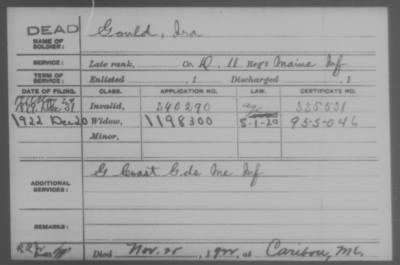 DEAD
NAME OF SOLDIER: Gould, Ira
SERVICE: Late rank, Co. D, 11 Reg't Maine Inf
TERM OF SERVICE: Enlisted , 1 Discharged , 1
DATE OF FILING. CLASS. APPLICATION NO. LAW. CERTIFICATE NO.
Invalid, 240290 325531
1922 Dec 20 Widow, 1198300 5-1-20 955046
Minor,
ADDITIONAL SERVICES: G Coast Gds Me Inf
REMARKS:
Died Nov. 25, 1922, at Caribou, Me.